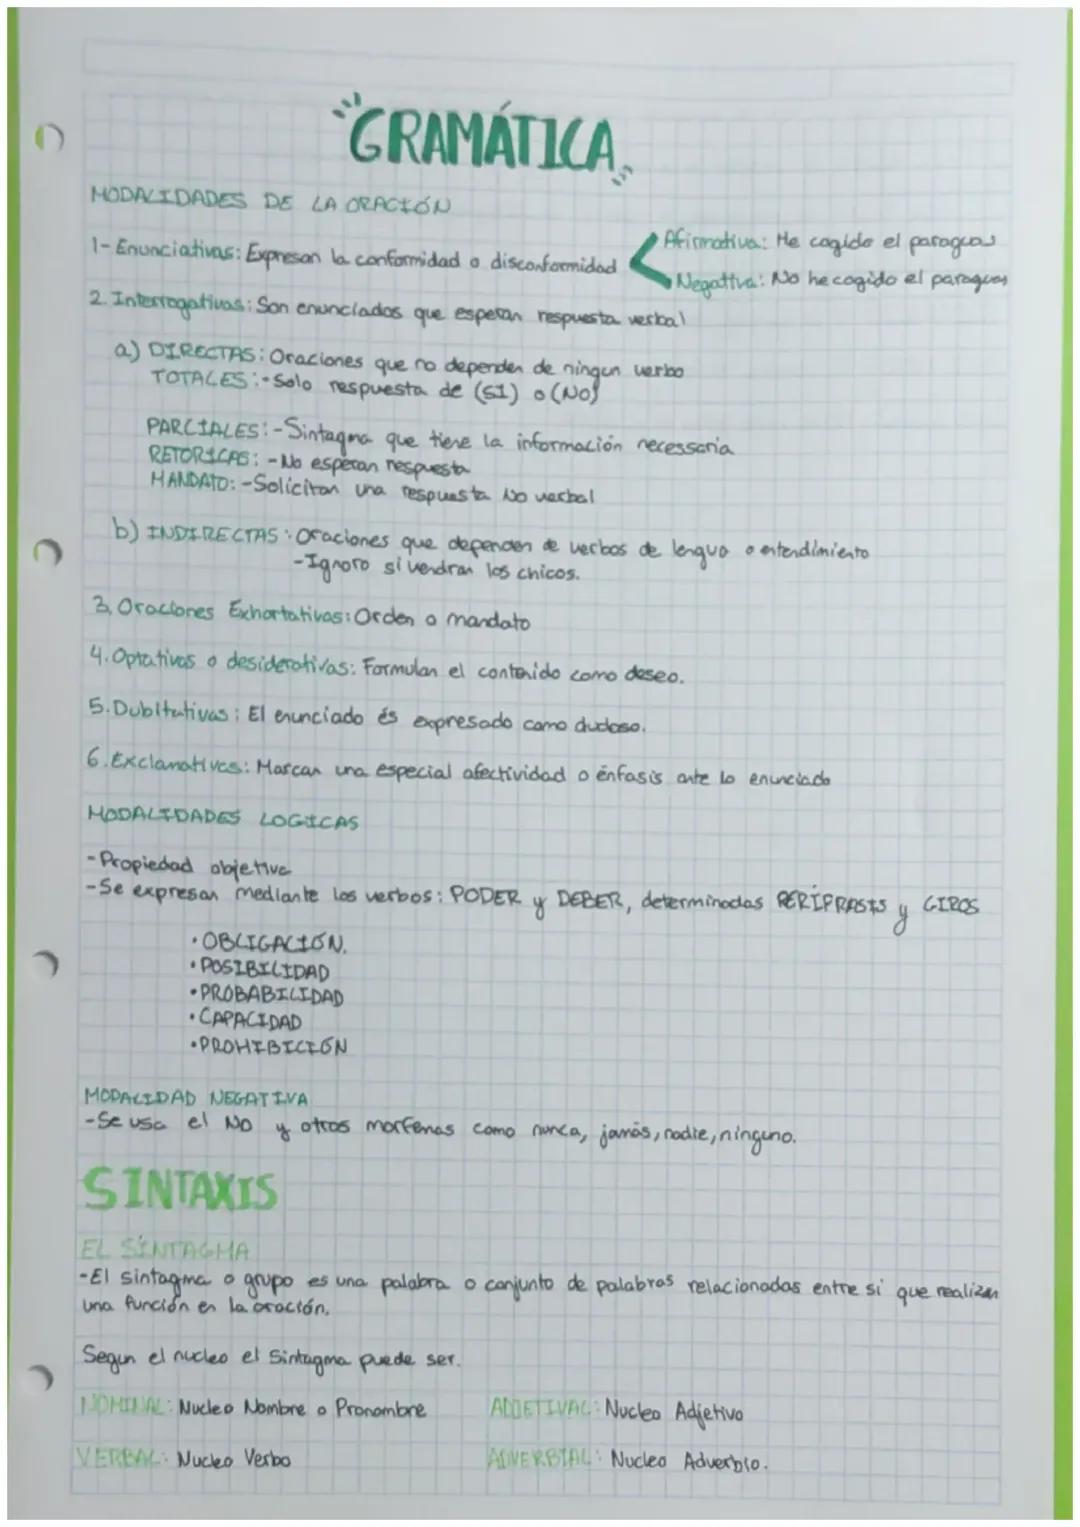 GRAMÁTICA
MODALIDADES DE LA ORACIÓN
1- Enunciativas: Expresan la conformidad o disconformidad
Afirmativa: He cogido el paraguas
Negativa: No he cogido el paraguas
2. Interrogativas: Son enunciados que esperan respuesta verbal
a) DIRECTAS: Oraciones que no dependen de ningun verbo
TOTALES: -Solo respuesta de (SI) o (NO)
PARCIALES: -Sintagma que tiene la información necessaria
RETORICAS: -No esperan respuesta
MANDATO: -Solicitan una respuesta No verbal
b) INDIRECTAS: Oraciones que dependen de verbos de lengua o entendimiento
-Ignoro si vendran los chicos.
3. Oraciones Exhortativas: Orden o mandato
4. Optativas o desiderativas: Formulan el contenido como deseo.
5. Dubitativas: El enunciado és expresado como dudoso.
6. Exclamatives: Marcan una especial afectividad o énfasis ante lo enunciado
MODALIDADES LOGICAS
-Propiedad objetiva
-Se expresan mediante los verbos: PODER y DEBER, determinadas PERÍFRASIS y GIROS
• OBLIGACIÓN.
• POSIBILIDAD
• PROBABILIDAD
• CAPACIDAD
• PROHIBICIÓN
MODALIDAD NEGATIVA
-Se usa el NO y otros morfemas como nunca, jamás, nadie, ninguno.
SINTAXIS
EL SINTAGMA
-El sintagma o grupo es una palabra o conjunto de palabras relacionadas entre si que realizan
una función en la oración.
Segun el nucleo el Sintagma puede ser.
NOMINAL: Nucleo Nombre o Pronombre
ADJETIVAL: Nucleo Adjetivo
VERBAL: Nucleo Verbo
ADVERBIAL: Nucleo Adverbio.